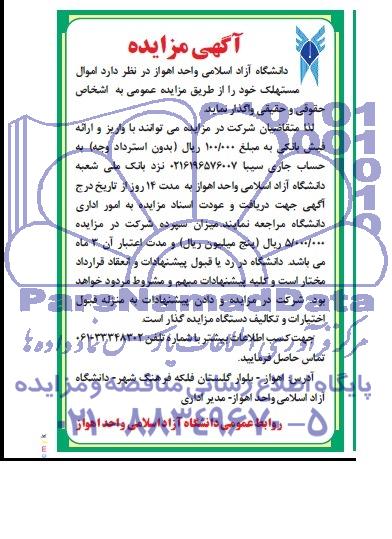 آگهی مزایده
دانشگاه آزاد اسلامی واحد اهواز در نظر دارد اموال
مستهلک خود را از طریق مزایده عمومی به اشخاص
حقوقی و حقیقی واگذار نماید.
لذا متقاضیان شرکت در مزایده می توانند با واریز و ارائه
فیش بانکی به مبلغ ۱۰۰/۰۰۰ ریال (بدون استرداد وجه) به
حساب جاری سیبا ۰۲۱۶۱۹۶۵۷۶۰۰۷ نزد بانک ملی شعبه
دانشگاه آزاد اسلامی واحد اهواز به مدت ۱۴ روز از تاریخ درج
آگهی جهت دریافت و عودت اسناد مزایده به امور اداری
دانشگاه مراجعه نمایند.میزان سپرده شرکت در مزایده
۵/۰۰۰/۰۰۰ ریال (پنج میلیون ریال) و مدت اعتبار آن ۳ ماه
می باشد. دانشگاه در رد یا قبول پیشنهادات و انعقاد قرارداد
مختار است و کلیه پیشنهادات مبهم و مشروط مردود خواهد
بود. شرکت در مزایده و دادن پیشنهادات به منزله قبول
اختیارات و تکالیف دستگاه مزایده گذار است.
جهت کسب اطلاعات بیشتر با شماره تلفن ۳۳۳۴۸۳۰۲-۰۶۱
تماس حاصل فرمایید.
آدرس: اهواز- بلوار گلستان فلکه فرهنگ شهر- دانشگاه
آزاد اسلامی واحد اهواز- مدیر اداری
روابط عمومی دانشگاه آزاد اسلامی واحد اهواز
ParsNamadData
مرکز فرآوری اطلاعات پارس نماد داده ها
پایگاه اطلاع رسانی مناقصه ومزایده
۰۲۱-۸۸۳۴۹۶۷۰-۵